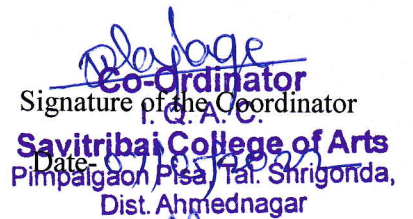 Co-Ordinator
Signature of the Coordinator
I. Q. A. C.
Savitribai College of Arts
Date-
Pimpalgaon Pisa, Tal. Shrigonda,
Dist. Ahmednagar